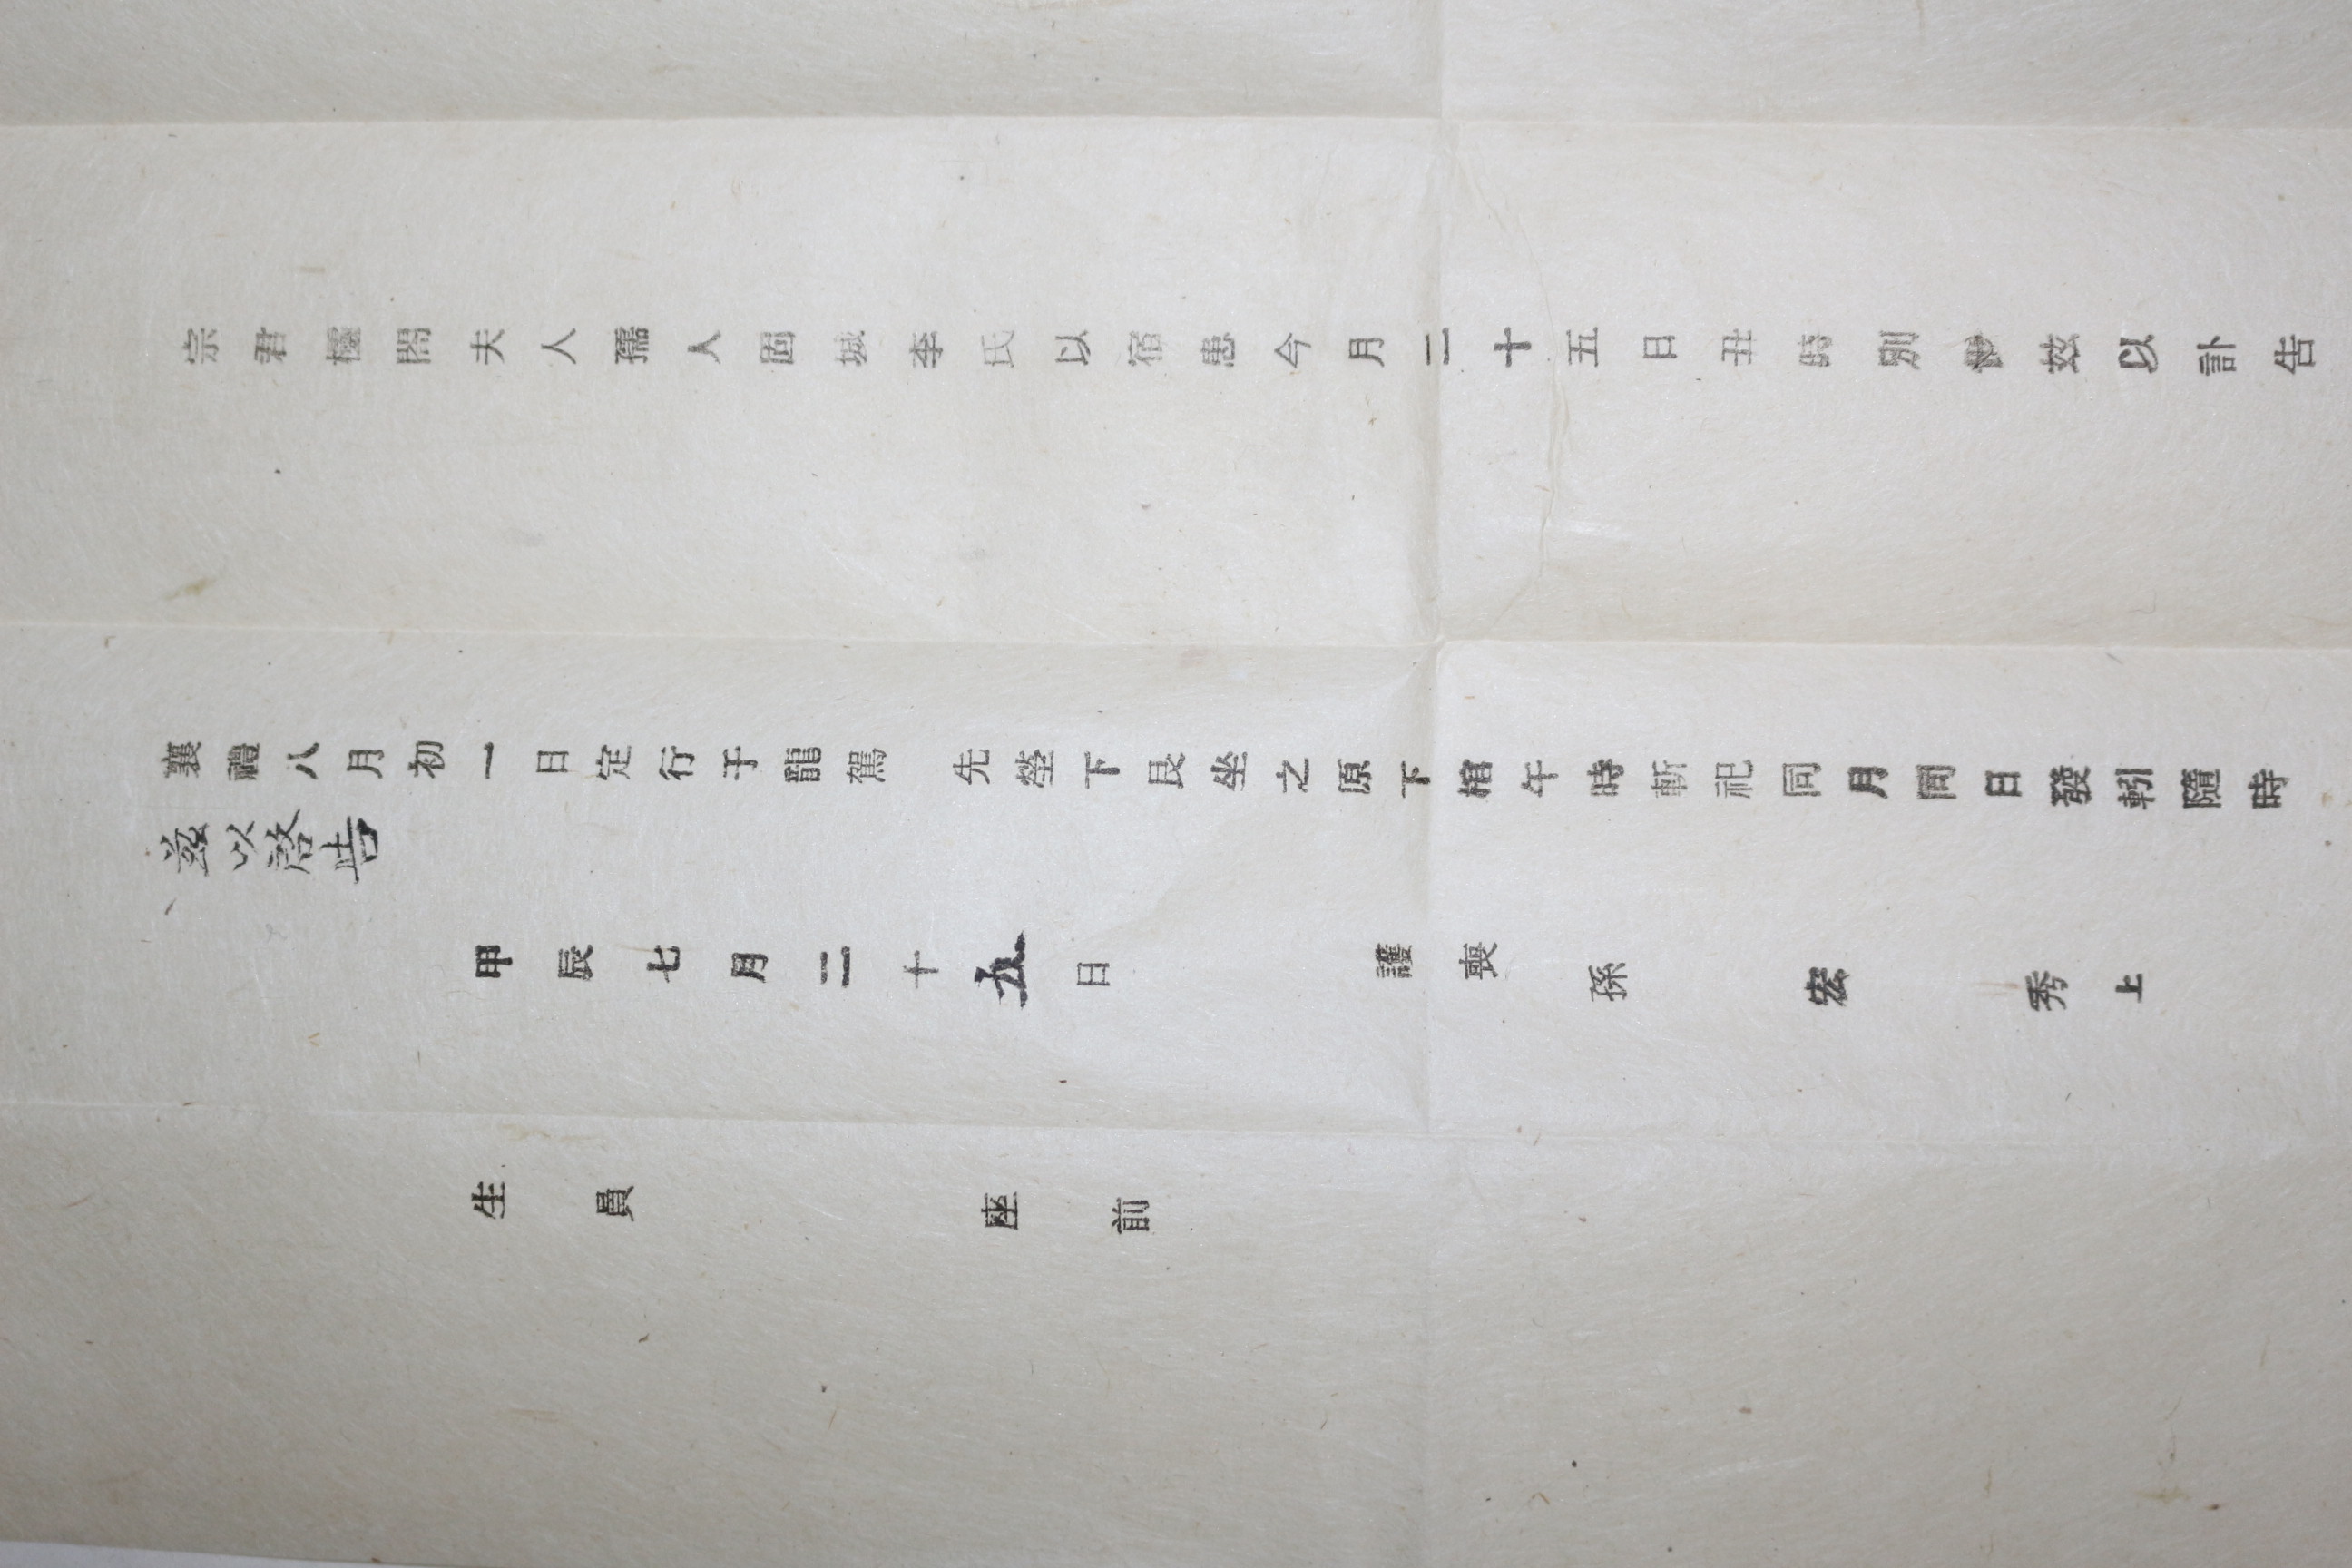 宗君閤夫人孺人固城李氏以宿患今月二十五日丑時別世玆以訃告
襄禮八月初一日定行于龍駕 先塋下艮坐之原下棺午時斬祀同月同日發靷隨時
玆以啓告
甲辰七月二十五日 護喪 孫 宏 秀 上
生員 座前